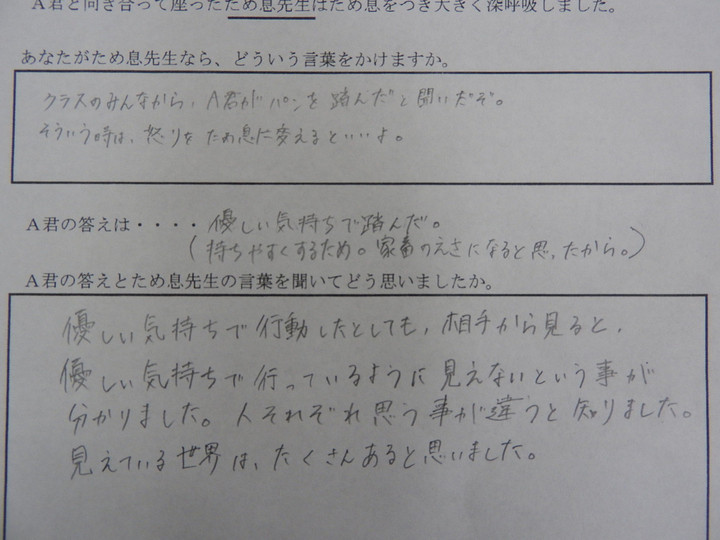 A君と向き合って座ったため息先生はため息をつき大きく深呼吸しました。
あなたがため息先生なら、どういう言葉をかけますか。
クラスのみんなから、A君がパンを踏んだと聞いだぞ。
そういう時は、怒りをため息に変えるといいよ。
A君の答えは・・・・優しい気持ちで踏んだ。
(持ちやすくするため。家畜のえさになると思ったから。)
A君の答えとため息先生の言葉を聞いてどう思いましたか。
優しい気持ちで行動したとしても、相手から見ると、
優しい気持ちで行っているように見えないという事が
分かりました。人それぞれ思う事が違うと知りました。
見えている世界は、たくさんあると思いました。